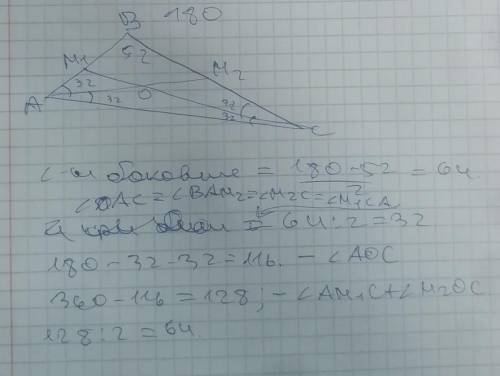 B 180
M1 52 M2
A 32 32 O 32 32 C
= 180-52 / 2 = 64
∠OAC = ∠BAM2 = ∠M2C = ∠M1CA
= 64:2 = 32
180-32-32=116. - ∠AOC
360-116=128; - ∠AM1C+∠M2OC
128:2=64.